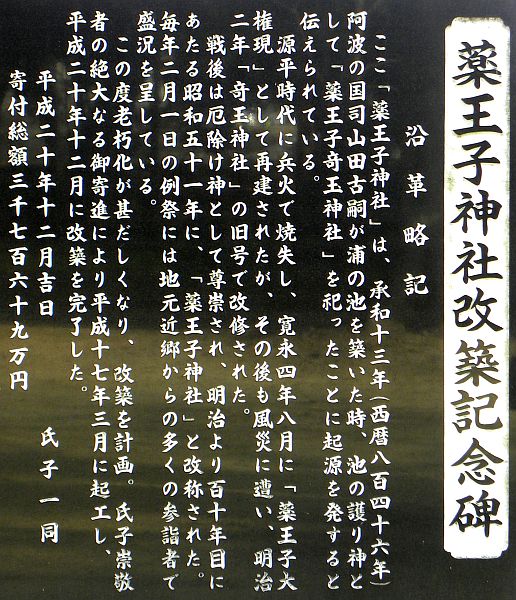 薬王子神社改築記念碑
沿革略記
ここ「薬王子神社」は、承和十三年(西暦八百四十六年)
阿波の国司山田古嗣が浦の池を築いた時、池の護り神と
して「薬王子奇王神社」を祀ったことに起源を発すると
伝えられている。
源平時代に兵火で焼失し、寛永四年八月に「薬王子大
権現」として再建されたが、その後も風災に遭い、明治
二年「奇王神社」の旧号で改修された。
戦後は厄除け神として尊崇され、明治より百十年目に
あたる昭和五十一年に、「薬王子神社」と改称された。
毎年二月一日の例祭には地元近郷からの多くの参詣者で
盛況を呈している。
この度老朽化が甚だしくなり、改築を計画。氏子崇敬
者の絶大なる御寄進により平成十七年三月に起工し、
平成二十年十二月に改築を完了した。
平成二十年十二月吉日 氏子一同
寄付総額三千七百六十九万円